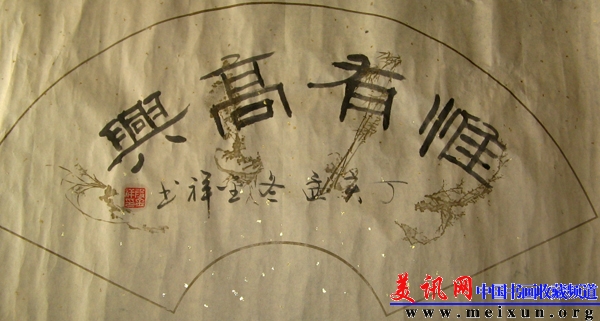 惟有高興
丁亥孟冬金祥书
美讯网
中国书画收藏频道
www.meixun.org